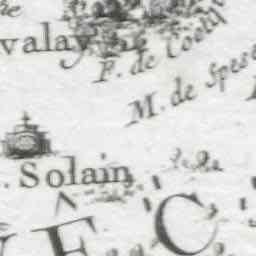 valay
F. de Coëtq
M. de Spes
. Solain
E C